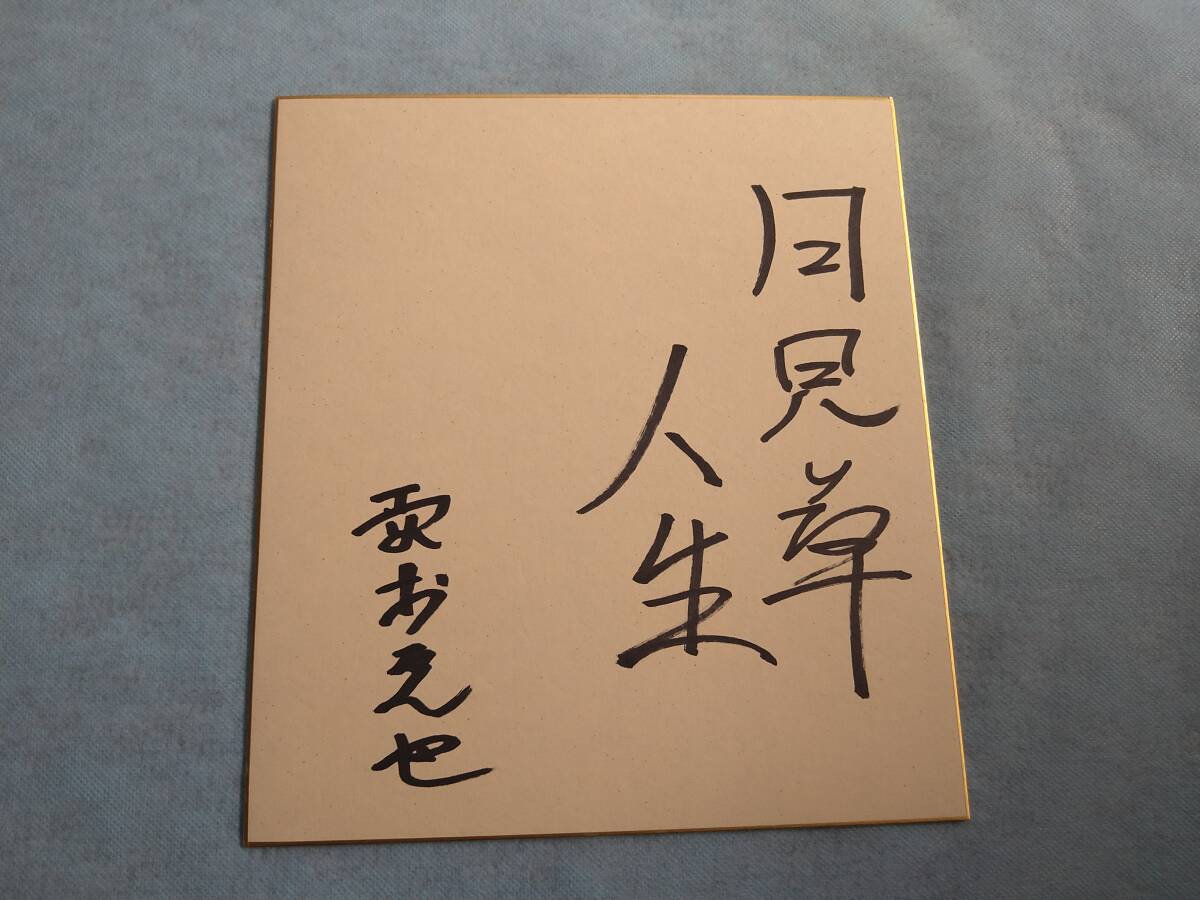 月見草
人生
野村克也